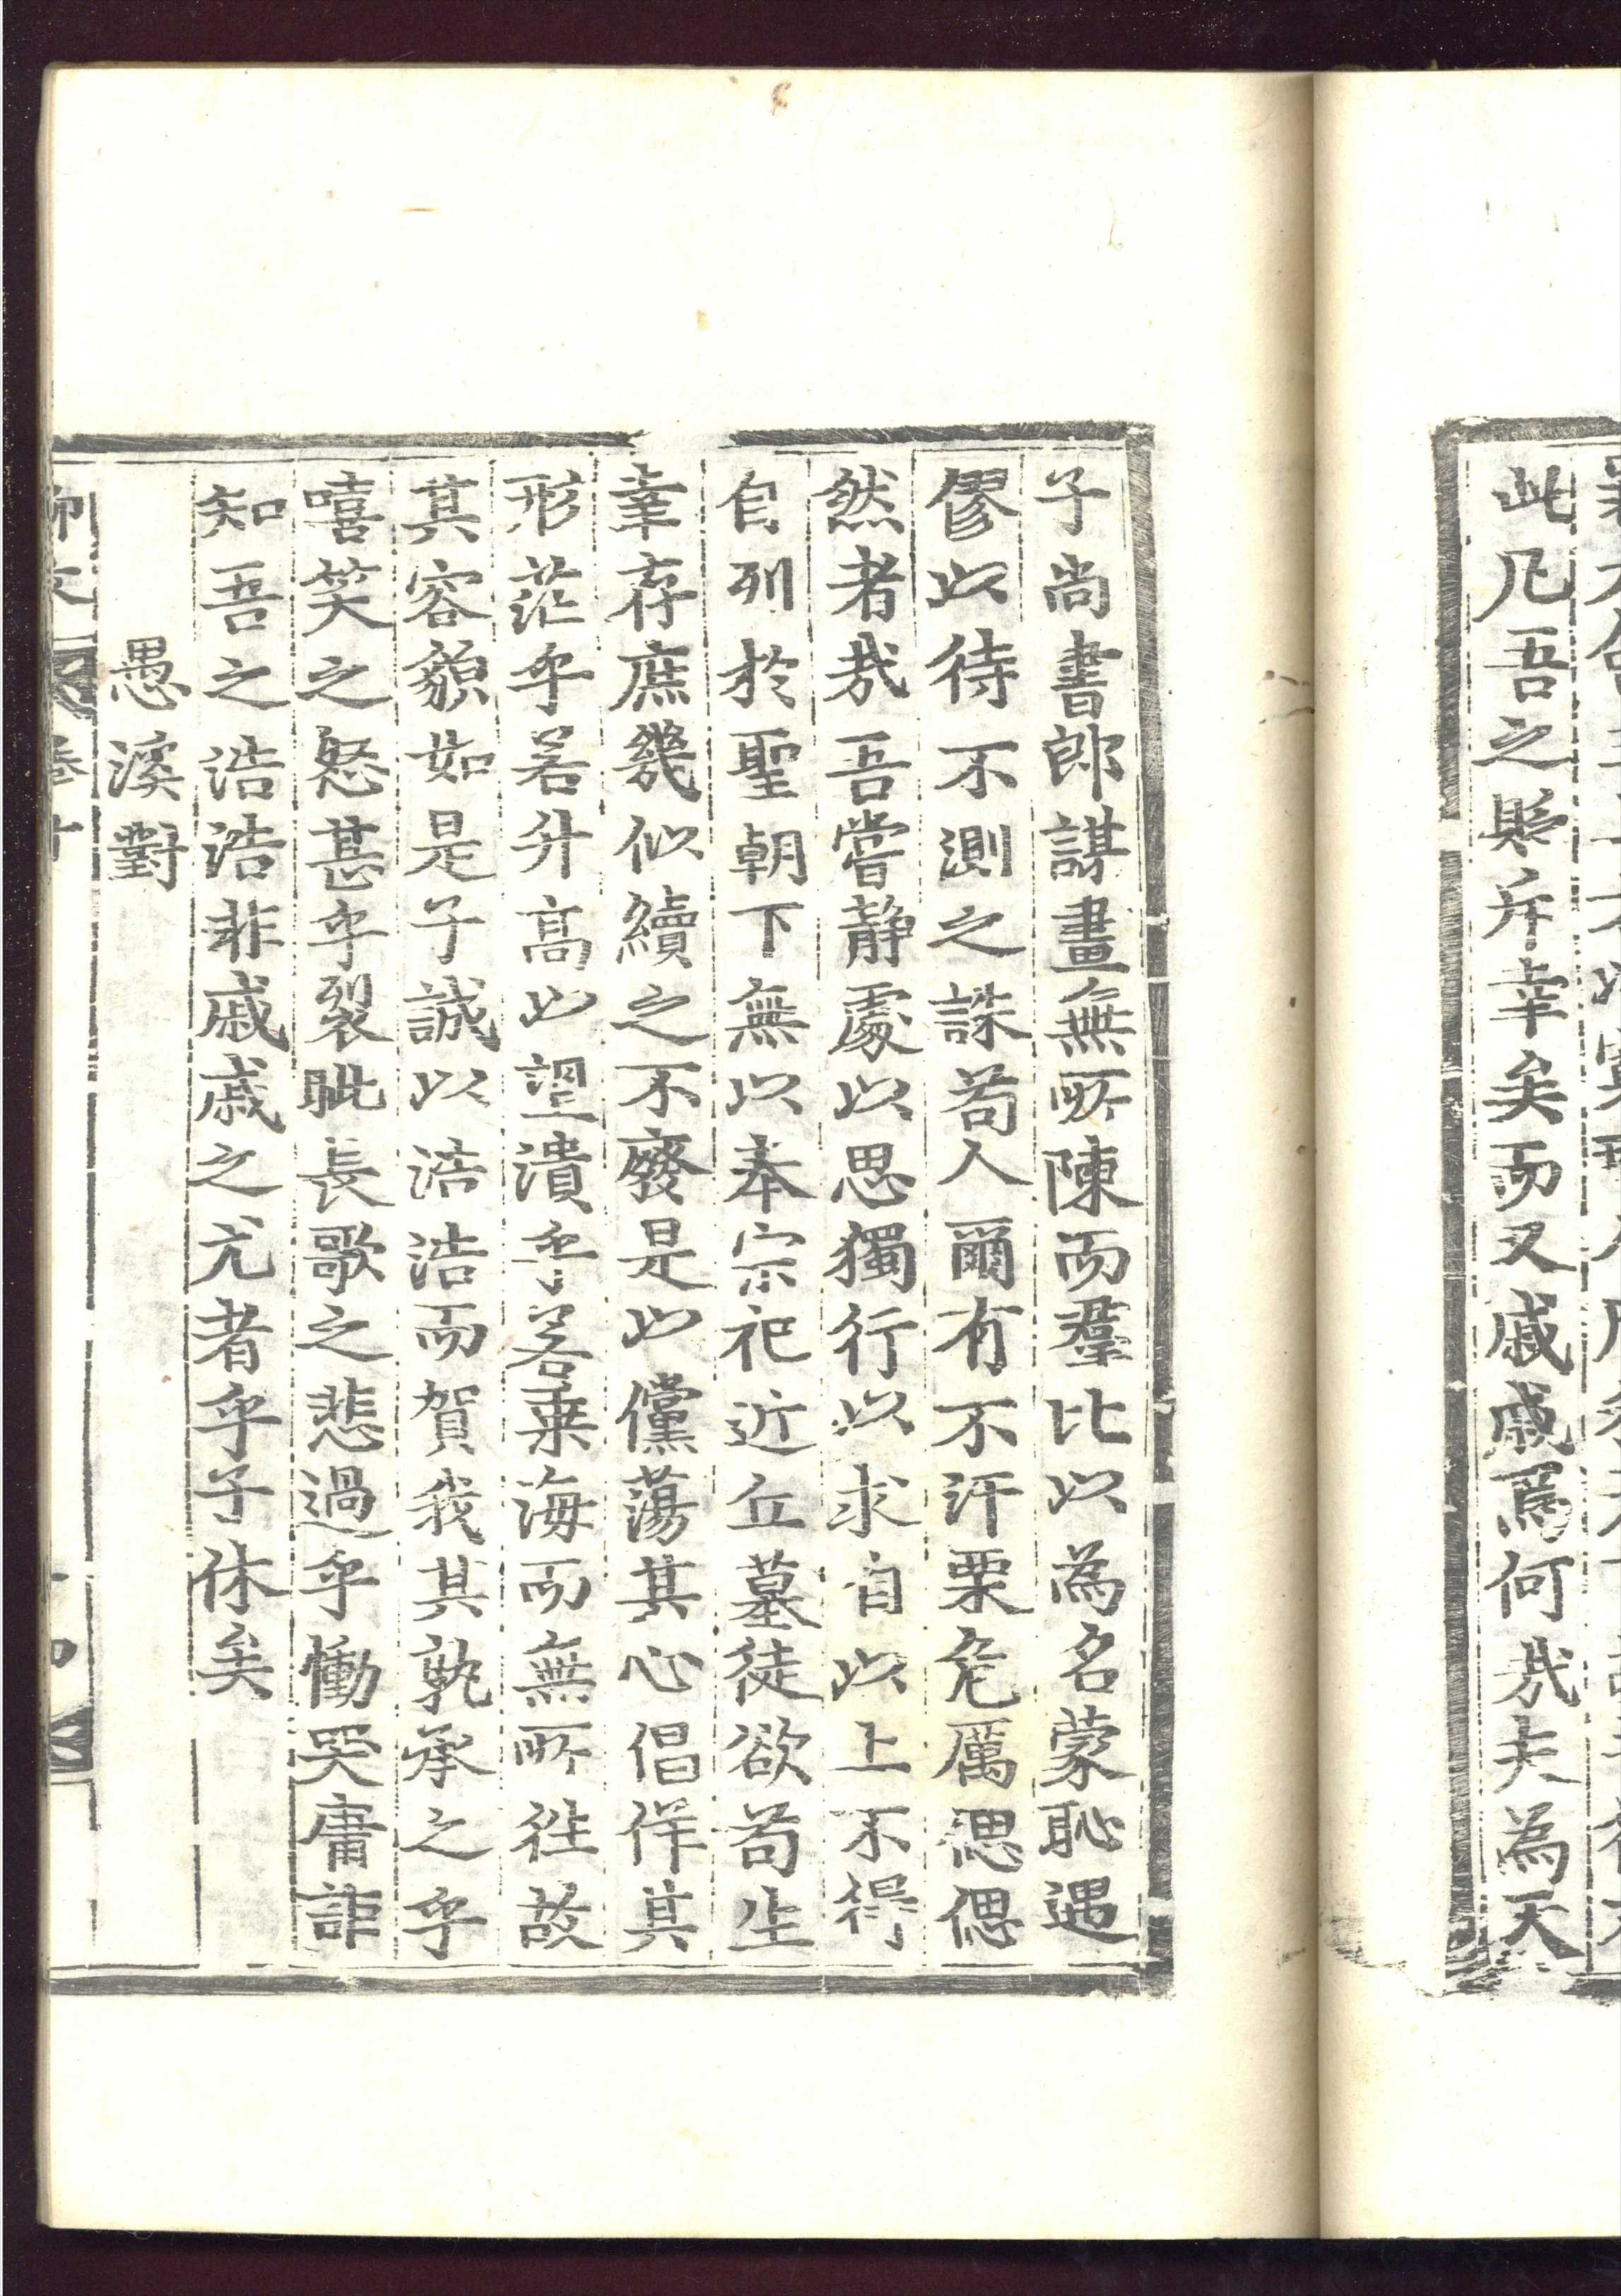 此凡吾之貶斥幸矣而又戚戚焉何哉夫為天
子尚書郎謀畫無所陳而羣比以為名蒙恥遇
僇以待不測之誅苟人爾有不汗栗危厲偲偲
然者哉吾嘗靜處以思獨行以求自以上不得
自列於聖朝下無以奉宗祀近丘墓徒欲苟生
幸存庶幾似續之不廢是以儻蕩其心倡佯其
形茫乎若升高以望潰乎若乗海而無所往故
其容貌如是子誠以浩浩而賀我其孰承之乎
嘻笑之怒甚乎裂眦長歌之悲過乎慟哭庸詎
知吾之浩浩非戚戚之尤者乎子休矣
愚溪對